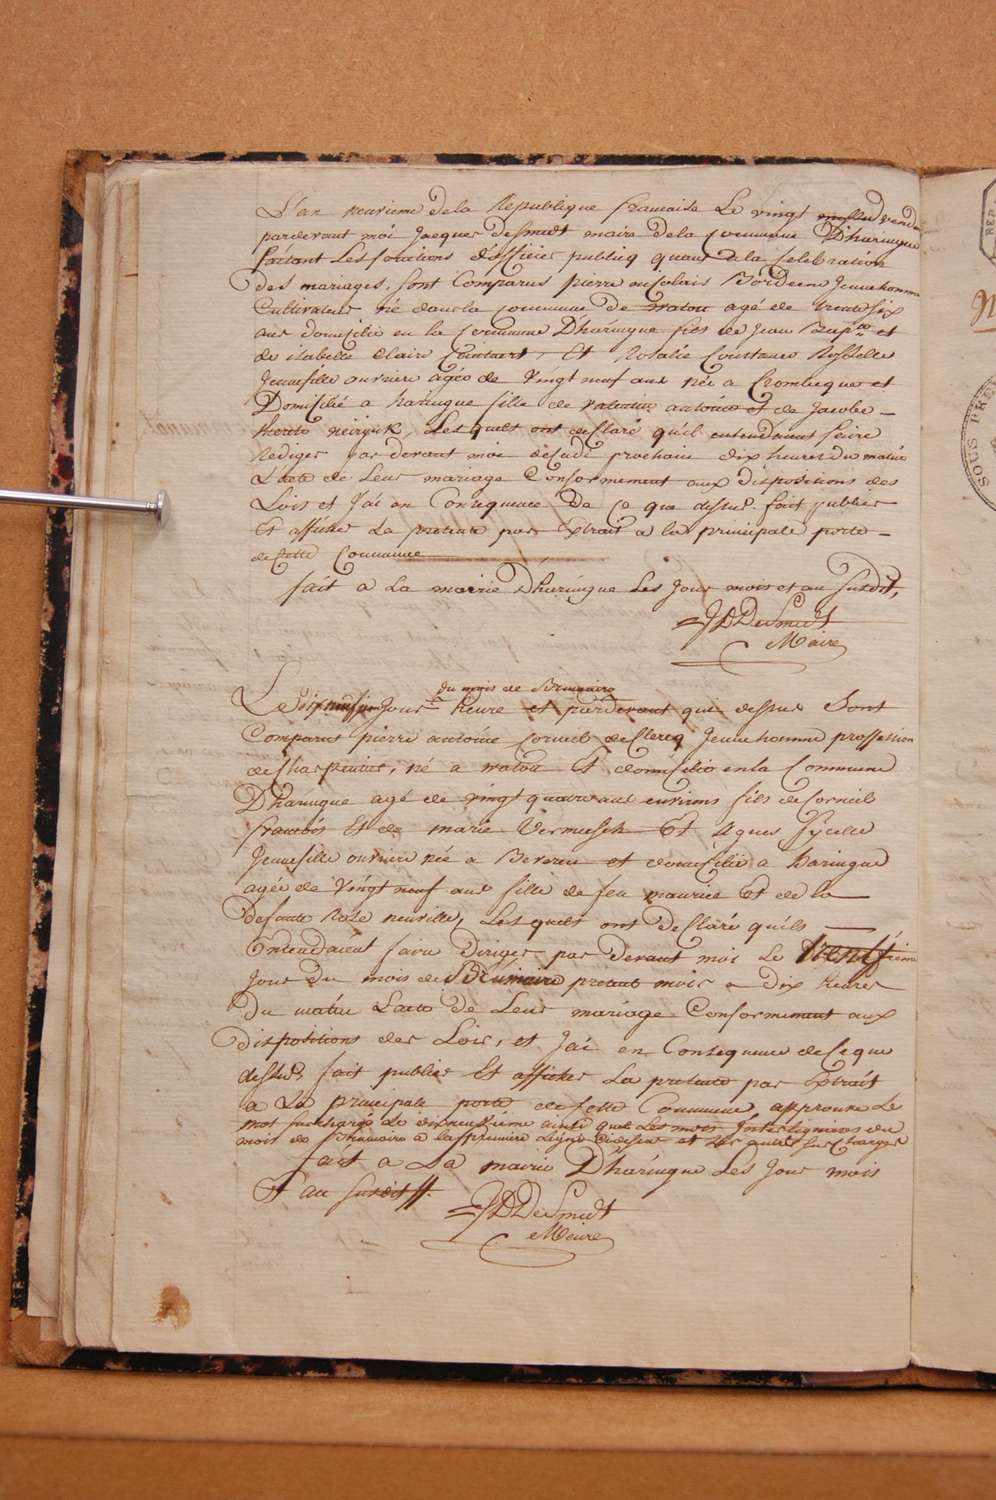 L'an neuvieme dela Republique francaise Le vingt vend
parderant moi Jacques Desmidt maire dela commune D'haringue
faisant Les fonctions d'officier publicq quant ala Celebration
des mariages, sont Comparus pierre nicolais Bordeene Jeunehomme
Cultivateur né dans la commune de watou agé de trente six
ans domicilié en la Commune D'haringue fils de Jean Bap.te et
de isabelle claire Et Rosalie Constance Rysselle
Jeunefille ouvriere agée de vingt neuf ans née a Crombecque et
Domicilié a haringue fille de valentin antoine et de Jacobe
neirynk, Lesquels ont declaré qu'il entendment faire
Rediger par devant moi decadi prochain dix heures du matin
L'acte de Leur mariage Conformement aux dispositions des
Lois et J'ai en Consequence De ce que dessus fait publier
Et afficher La presente par Extrait a la principale porte
de Cette Commune
fait a La mairie D'haringue Les Jour mois et an susdit,
JDDeSmidt
Maire
du mois de Brumaire
Le dixneufvieme Jour heure et parderant qui dessus Sont
Comparut pierre antoine Corneil deClercq Jeunehomme proffession
de Charpentier, né a watou Et domicilié en la Commune
D'haringue agé de vingt quatre ans environs fils de Corneil
francois Et de marie Vermeesch Et Agnes Sycelle
Jeunefille ouvriere née a Beveren et domicilié a haringue
agée de vingt neuf ans fille de feu maurice Et de la
Defunte Rose neuville, Lesquels ont Declaré qu'ils
Entendaient faire Diriger par Devant moi Le
Jour Du mois de Brumaire present mois a Dix heures
Du matin L'acte De Leur mariage Conformement aux
dispositions des Lois, et J'ai en Consequence de Ce que
dessus, fait publier Et afficher La presente par Extrait
a La principale porte de Cette Commune, approuve Le
mot surchargé de dixneufvieme ainsi que Les mots Interlignaires du
mois de Brumaire a la premiere Ligne cidessus et Les autres sur Charges
fait a La mairie D'haringue Les Jour mois
Et an susdit
JDDeSmidt
Maire
SOUS PRE
REP